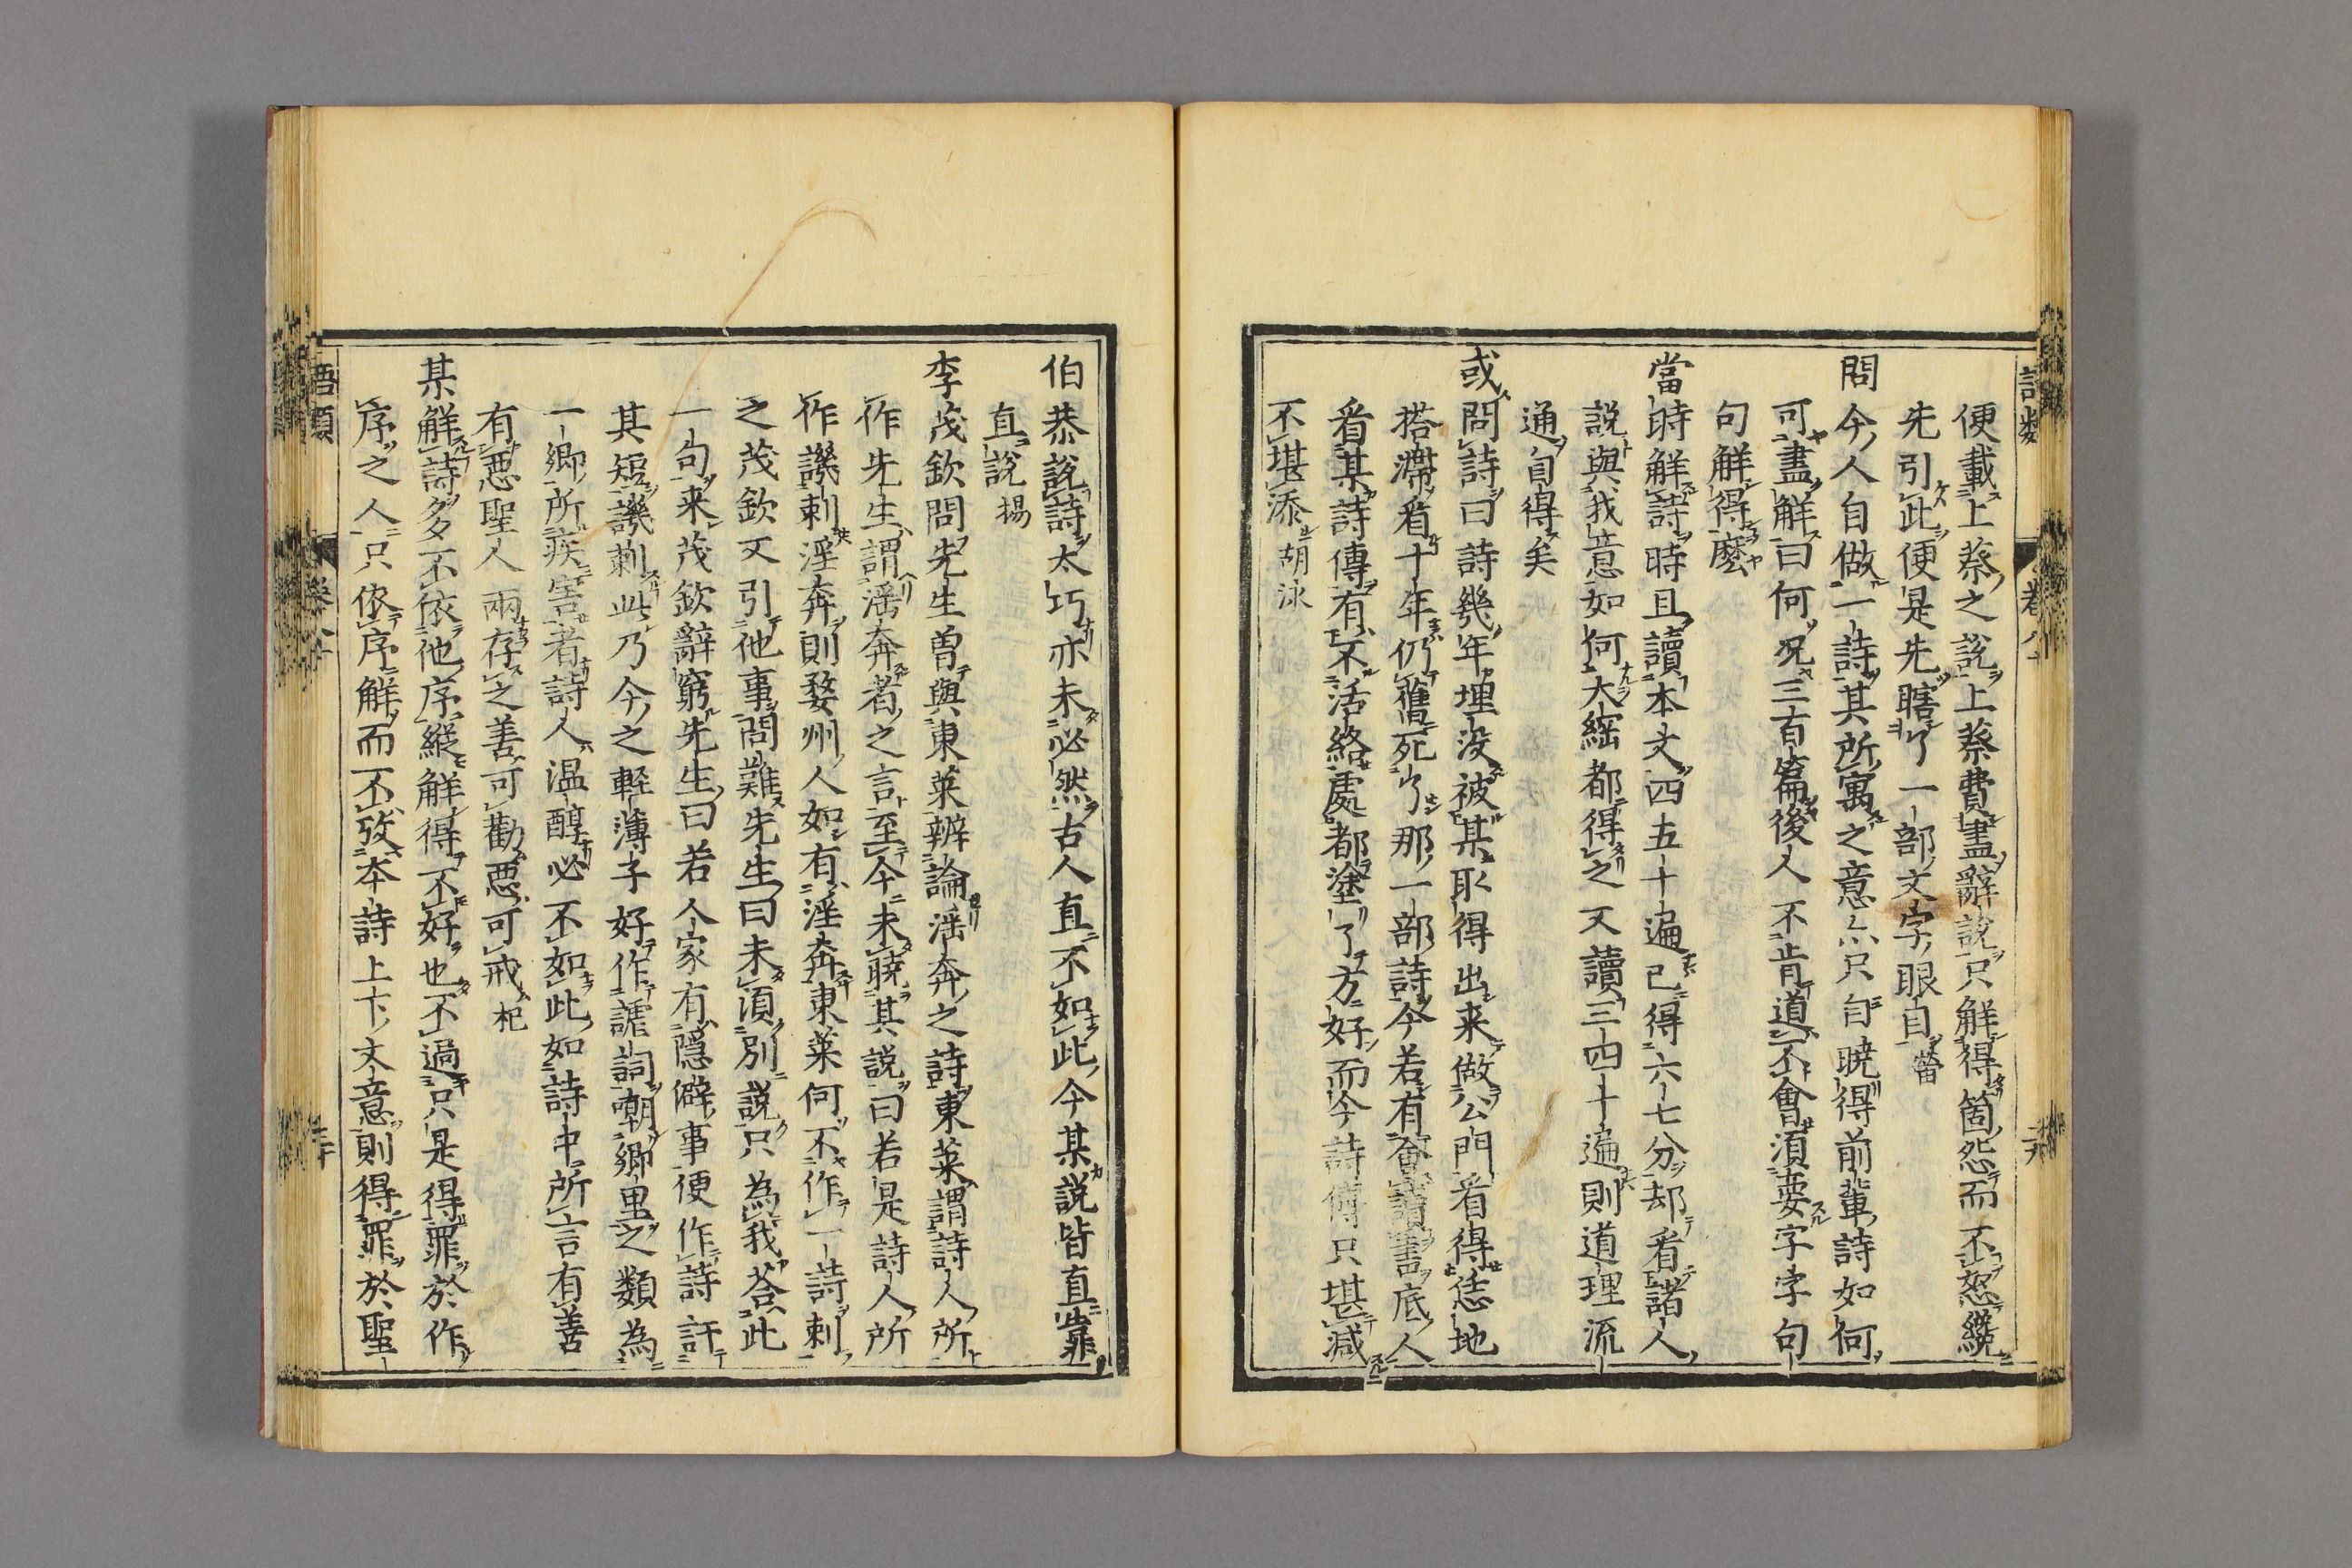 便載上蔡之說上蔡費盡辭說只解得箇怨而不怒纔
先引此便是先瞎了一部文字眼目㽦
問今人自做一詩其所寓之意亦只自曉得前輩詩如何
可盡解曰何况三百篇後人不肯道不會須要字字句
句解得麽
當時解詩時且讀本文四五十遍已得六七分却看諸人
說與我意如何大綱都得之又讀三四十遍則道理流
通自得矣
或問詩曰詩幾年埋没被某取得出来做公門看得恁地
搭滯看十年仍舊死了那一部詩今若有會讀書底人
看某詩傳有不活絡處都塗了方好而今詩傳只堪减
不堪添胡泳
伯恭説詩太巧亦未必然古人直不如此今某説皆直靠
直說揚
李茂欽問先生曽與東萊辨論淫奔之詩東萊謂詩人所
作先生謂淫奔者之言至今未曉其説曰若是詩人所
作譏刺淫奔則婺州人如有淫奔東萊何不作一詩刺
之茂欽又引他事問難先生曰未須別説只為我荅此
一句来茂欽辭窮先生曰若人家有隱僻事便作詩訐
其短譏刺此乃今之軽薄子好作謔詞嘲郷里之類為
一郷所疾害者詩人温醇必不如此如詩中所言有善
有惡聖人兩存之善可勸惡可戒杞
某解詩多不依他序縦解得不好也不過只是得罪於作
序之人只依序解而不攷本詩上下文意則得罪於聖
語類
卷八十